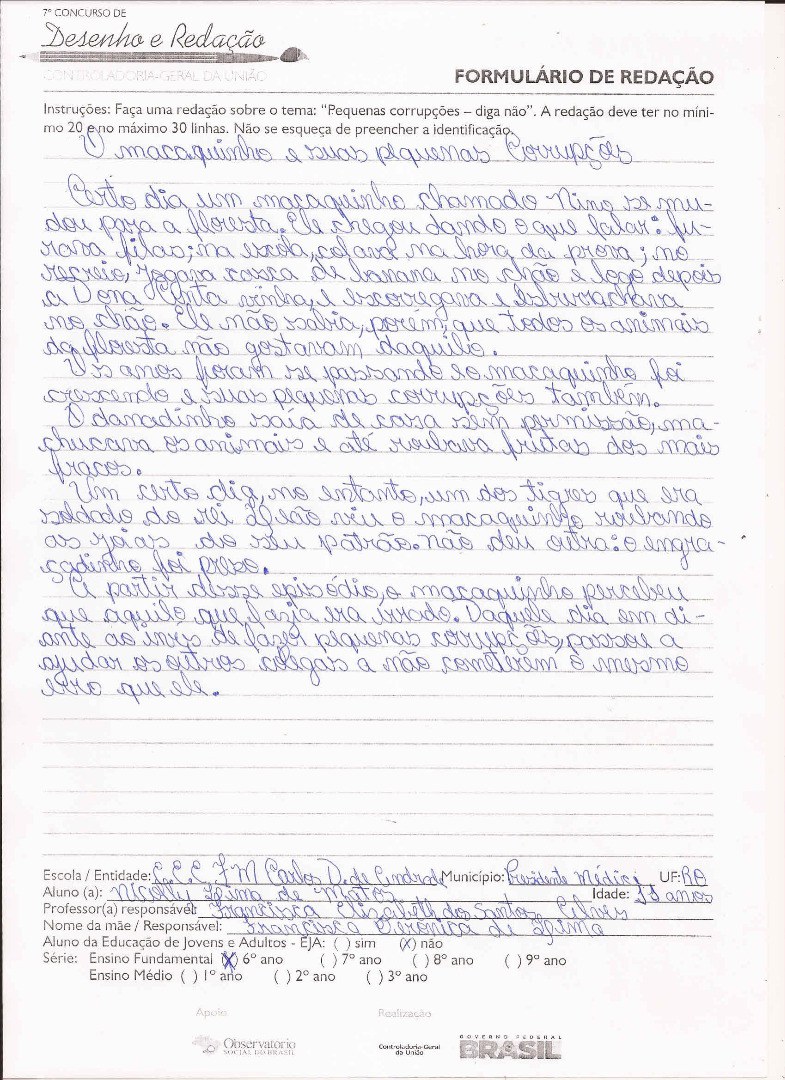 7º CONCURSO DE
Desenho e Redação
CONTROLADORIA-GERAL DA UNIÃO
FORMULÁRIO DE REDAÇÃO
Instruções: Faça uma redação sobre o tema: “Pequenas corrupções – diga não”. A redação deve ter no míni-
mo 20 e no máximo 30 linhas. Não se esqueça de preencher a identificação.
O macaquinho e suas pequenas Corrupções
Certo dia um macaquinho chamado Nino se mu-
dou para a floresta. Ele chegou dando o que falar: fu-
rava filas; na escola, colava na hora da prova; no
recreio, jogava casca de banana no chão e logo depois
a Dona vinha, e escorregava e esburrachava
no chão. Ele não sabia, porém, que todos os animais
da floresta não gostavam daquilo.
Os anos foram se passando e o macaquinho foi
crescendo e suas pequenas corrupções também.
O danadinho saía de casa sem permissão, ma-
chucava os animais e até roubava frutas dos mais
fracos.
Um certo dia, no entanto, um dos tigres que era
soldado do rei Leão viu o macaquinho roubando
as joias do seu patrão. Não deu outra: o engra-
çadinho foi preso.
A partir desse episódio, o macaquinho percebeu
que aquilo que fazia era errado. Daquele dia em di-
ante ao invés de fazer pequenas corrupções, passou a
ajudar os outros colegas a não cometerem o mesmo
erro que ele.
Escola / Entidade: E.E.E.F.M Carlos D. de Andrade Município: Presidente Médici UF: RO
Aluno (a): Nicolly Lima de Matos Idade: 11 anos
Professor(a) responsável: Francisca Elizabeth dos Santos Alves
Nome da mãe / Responsável: Francisca Verônica de Lima
Aluno da Educação de Jovens e Adultos - EJA: ( ) sim (X) não
Série: Ensino Fundamental (X) 6º ano ( ) 7º ano ( ) 8º ano ( ) 9º ano
Ensino Médio ( ) 1º ano ( ) 2º ano ( ) 3º ano
Apoio Realização
Observatório
SOCIAL DO BRASIL
Controladoria-Geral
da União
GOVERNO FEDERAL
BRASIL